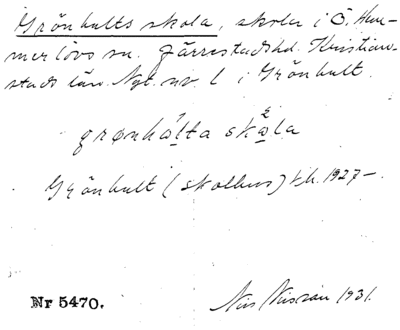 Grönhults skola, skola i Ö. Hm-
merlövs sn. Järrestads hd. Kristian-
stads län. Nyt. nv. l i Grönhult.
grønhålta skǻla
Grönhult (skolhus) Kh. 1927–.
Nr 5470.
Nils Nilsson 1931.